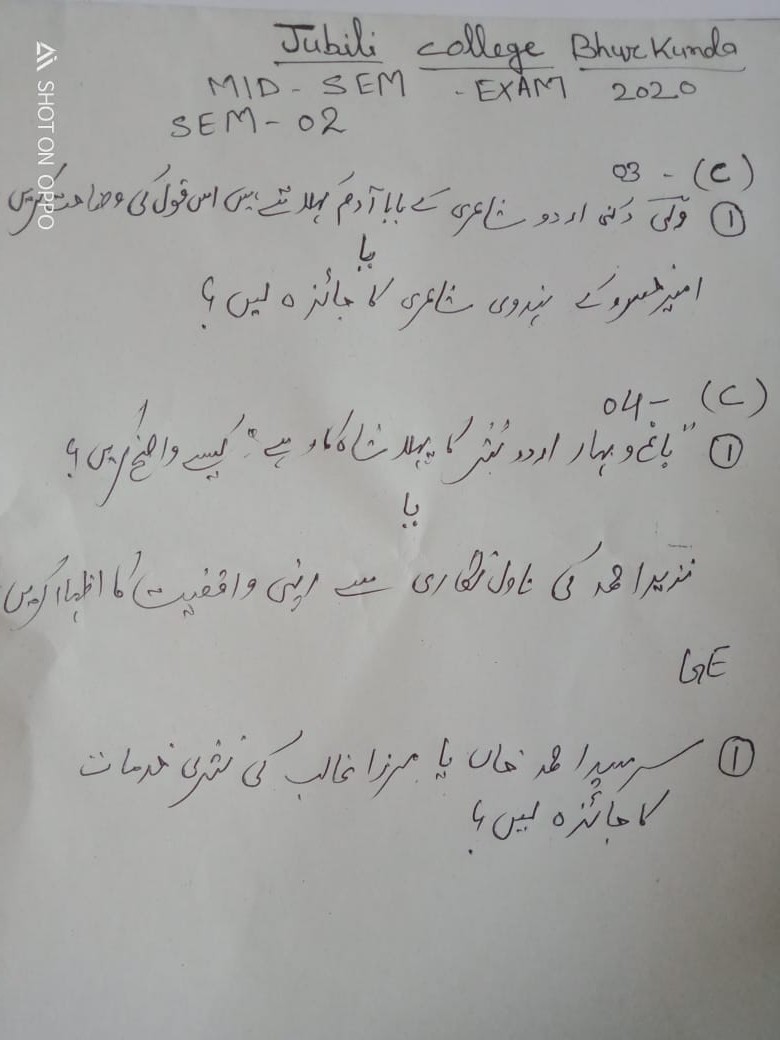 Jubili college Bhurkunda
MID - SEM - EXAM 2020
SEM - 02
(C) - 03
① ولی دکنی اردو شاعری کے بابا آدم کہلاتے ہیں اس قول کی وضاحت کریں
یا
امیر خسرو کے ہندوی شاعری کا جائزہ لیں؟
(C) - 04
① "باغ و بہار اردو نثر کا پہلا شاہکار ہے" کیسے واضح کریں؟
یا
نذیر احمد کی ناول نگاری سے اپنی واقفیت کا اظہار کریں
GE
① سرسید احمد خاں یا مرزا غالب کی نثری خدمات
کا جائزہ لیں؟
SHOT ON OPPO